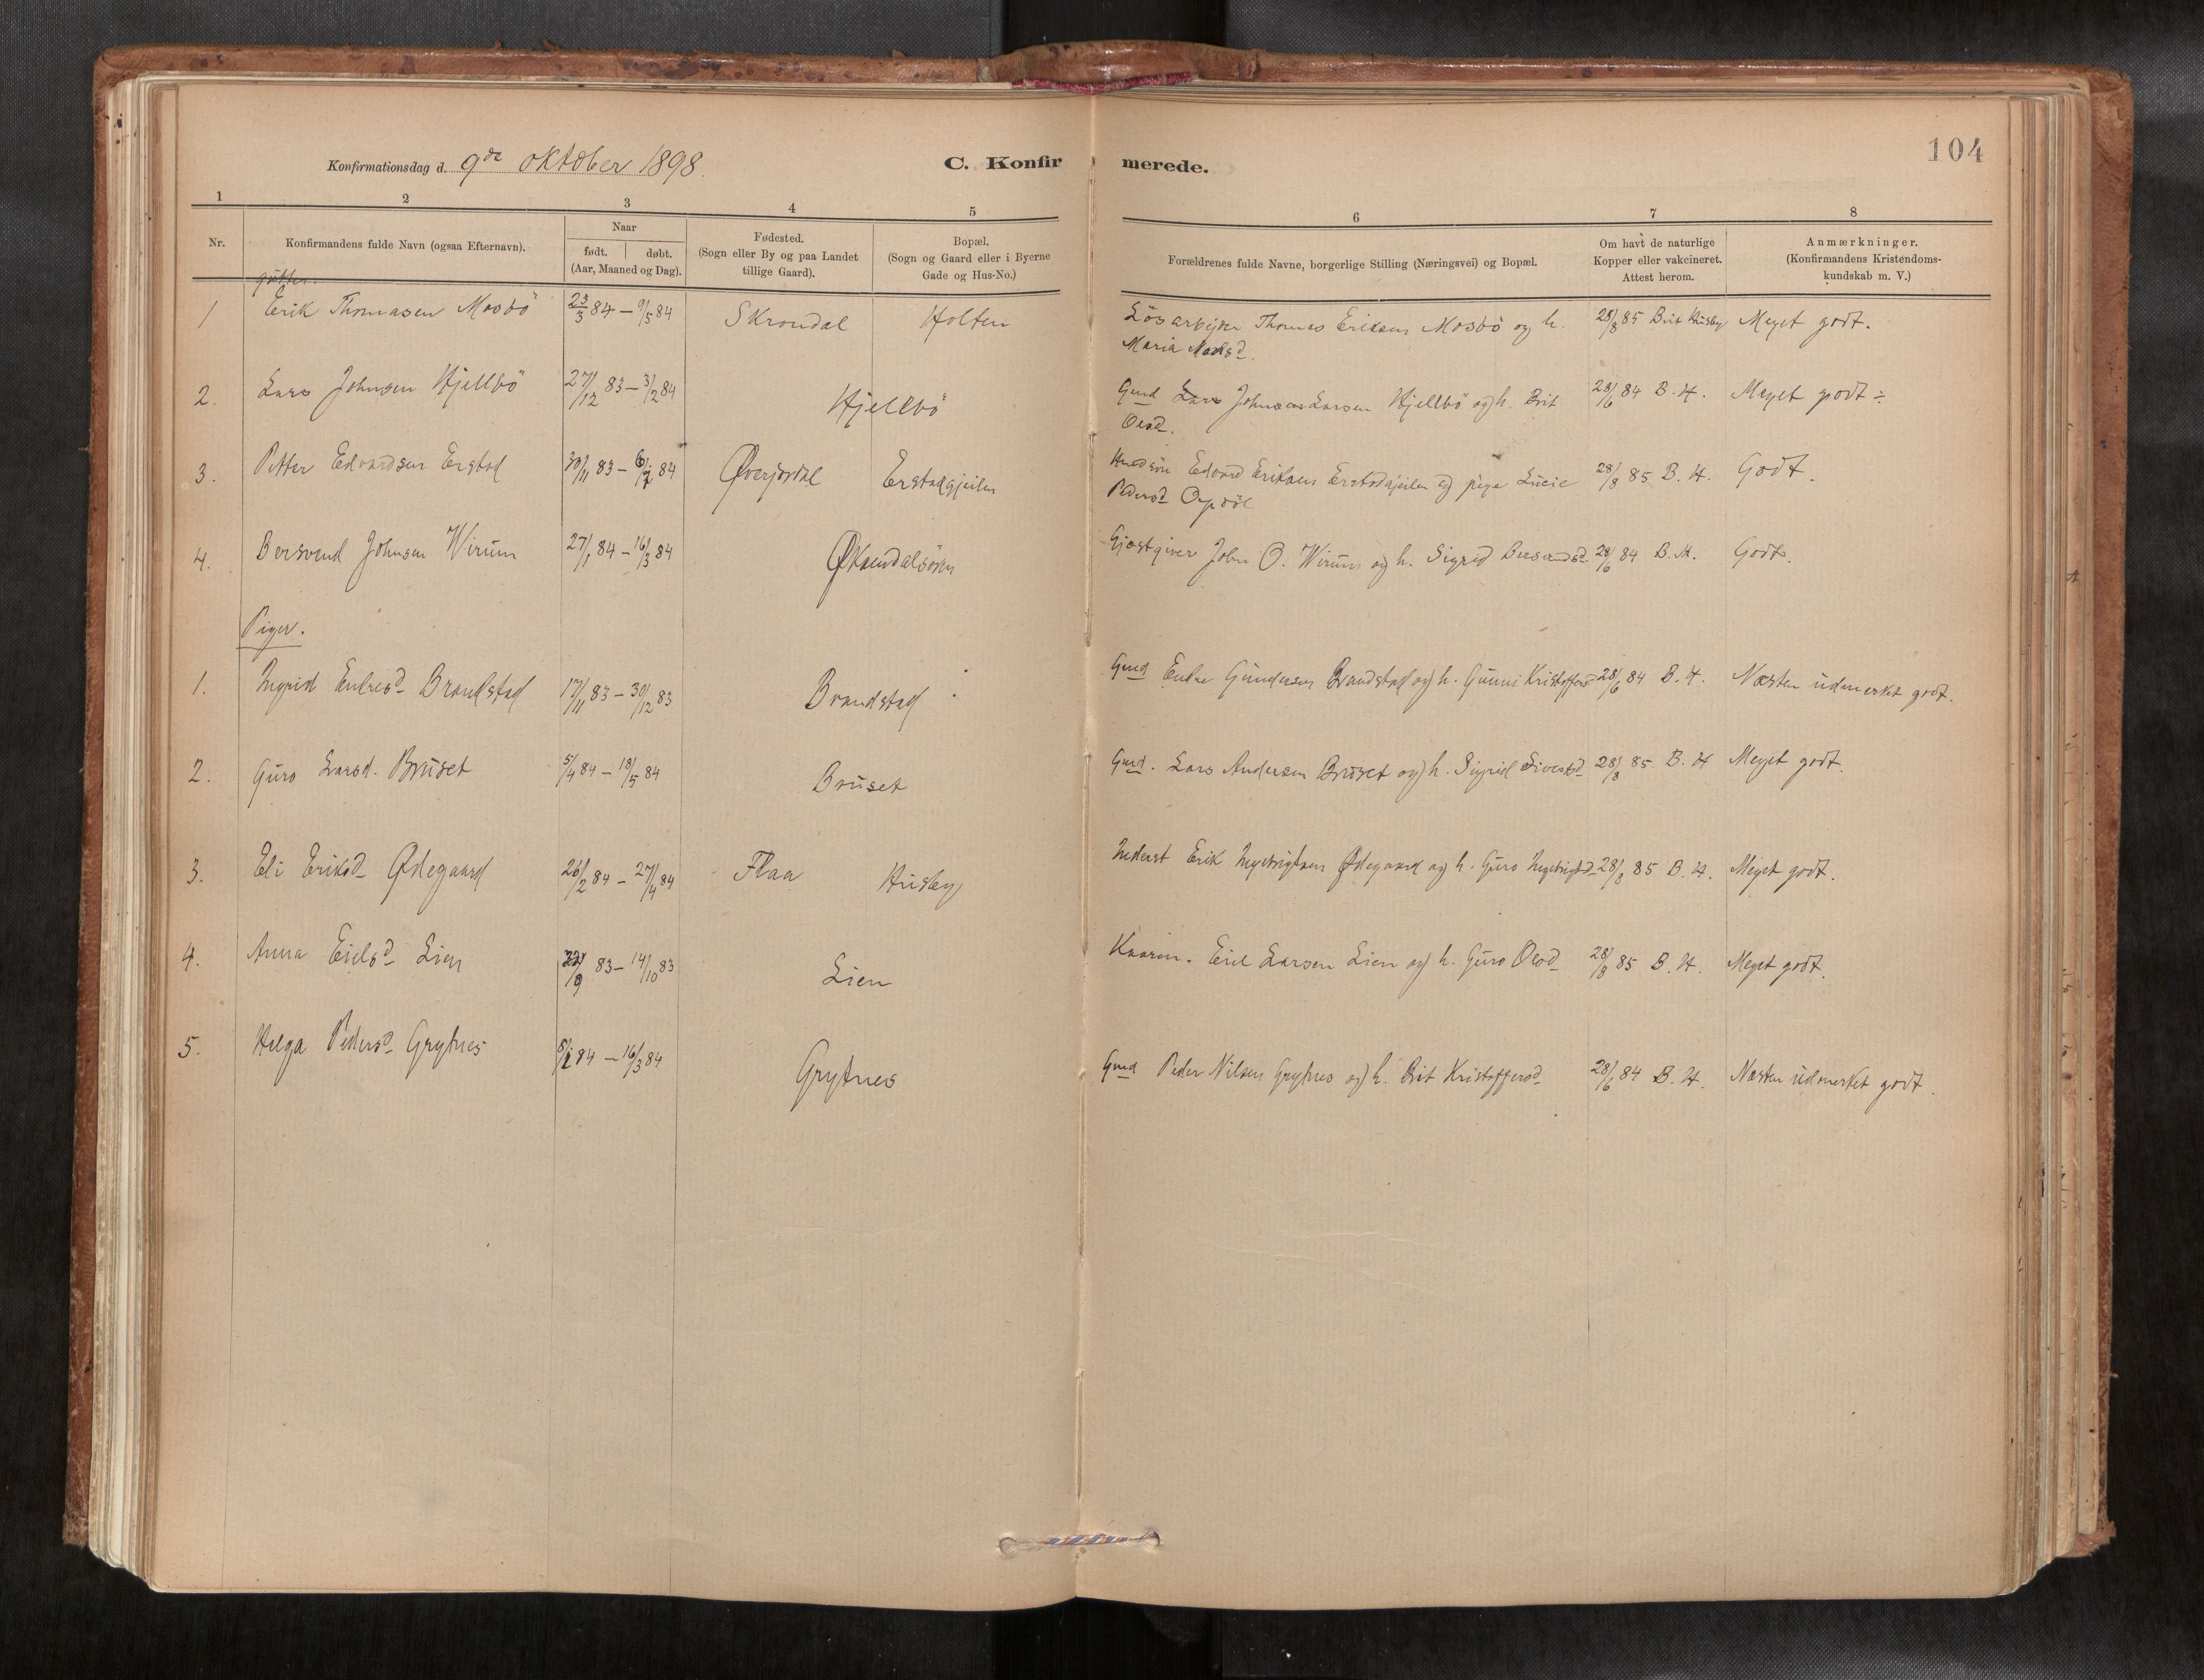 104
Konfirmationsdag d. 9de oktober 1898.
C. Konfirmerede.
1 2 3 4 5 6 7 8
Nr.
Konfirmandens fulde Navn (ogsaa Efternavn).
Naar
født. døbt.
(Aar, Maaned og Dag).
Fødested.
(Sogn eller By og paa Landet
tillige Gaard).
Bopæl.
(Sogn og Gaard eller i Byerne
Gade og Hus-No.)
Forældrenes fulde Navne, borgerlige Stilling (Næringsvei) og Bopæl.
Om havt de naturlige
Kopper eller vakcineret.
Attest herom.
Anmærkninger.
(Konfirmandens Kristendoms-
kundskab m. V.)
gutter.
1 Erik Thomasen Mosbö 23/3 84 – 9/5 84 Skrondal Holten Lösarbejder Thomas Eriksen Mosbö og h. 28/8 85 Brit Husby Meget godt.
Maria
2. Lars Johnsen Hjellbö 27/12 83 – 3/2 84 Hjellbö Gmd John Larsen Hjellbö og h. Brit 28/6 84 B. H. Meget godt ÷
Olsd.
3. Petter Edvardsen Erstad 30/11 83 – 6/1 84 Øverjordal Erstadgjeilen Edvard Eriksen Erstadgjeilen og pige Lucie 28/8 85 B. H. Godt.
Pedersd
4. Bersvend Johnsen Wirum 27/1 84 – 16/3 84 Øksendalsören Gjæstgiver John O. Wirum og h. Sigrid Bersvendsd 28/6 84 B. H. Godt.
Piger.
1. Ingrid Endresd Brandstad 17/11 83 – 30/12 83 Brandstad Gmd Endre Gundersen Brandstad og h. Gunni Kristoffersd 28/6 84 B. H. Næsten udmerket godt.
2. Guro Larsd. Bruset 5/4 84 – 18/5 84 Bruset Gmd. Lars Andersen Bruset og h. Sigrid Sivertsd 28/8 85 B. H Meget godt.
3. Eli Eriksd Ødegaard 26/2 84 – 27/4 84 Flaa Husby Inderst Erik Ingebrigtsen Ødegaard og h. Guro Ingebrigtsd 28/8 85 B. H. Meget godt.
4. Anna Lien 83 – 14/10 83 Lien Larsen Lien og h. Guro Olsd 28/8 85 B. H. Meget godt.
5. Helga Pedersd Grytnes 84 – 16/3 84 Grytnes Gmd Peder Nilsen Grytnes og h. Brit Kristoffersd 28/6 84 B. H. Næsten udmerket godt.